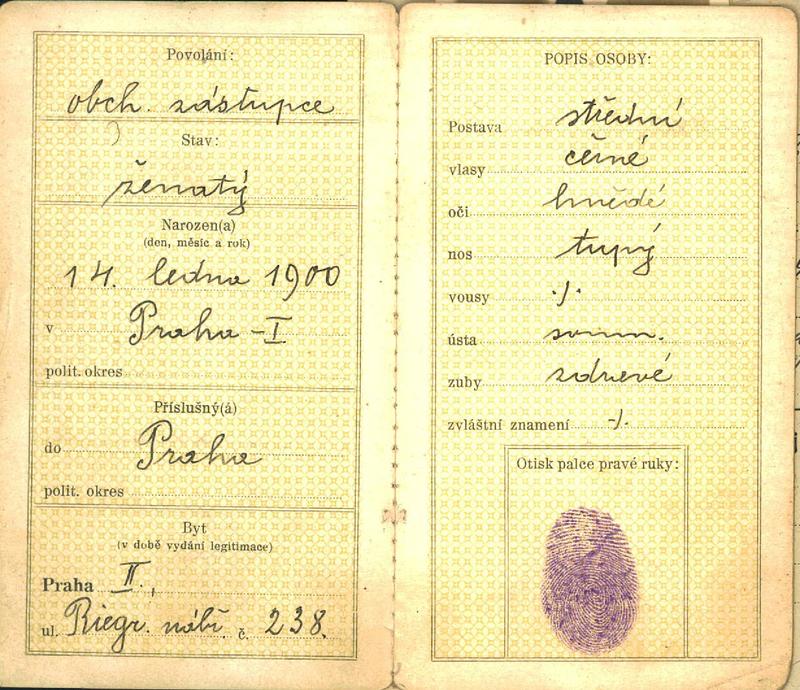 Povolání:
obch. zástupce
Stav:
ženatý
Narozen(a)
(den, měsíc a rok)
14. ledna 1900
v Praha-I
polit. okres
Příslušný(á)
do Praha
polit. okres
Byt
(v době vydání legitimace)
Praha II.,
ul. Riegr. nábř. č. 238.
POPIS OSOBY:
Postava střední
vlasy černé
oči hnědé
nos tupý
vousy ·/·
ústa soum.
zuby zdravé
zvláštní znamení -/·
Otisk palce pravé ruky: